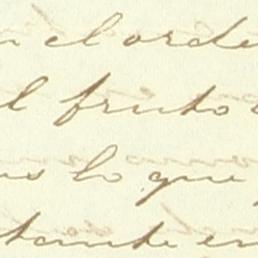 n el orde
l fruto
us lo que
tante en